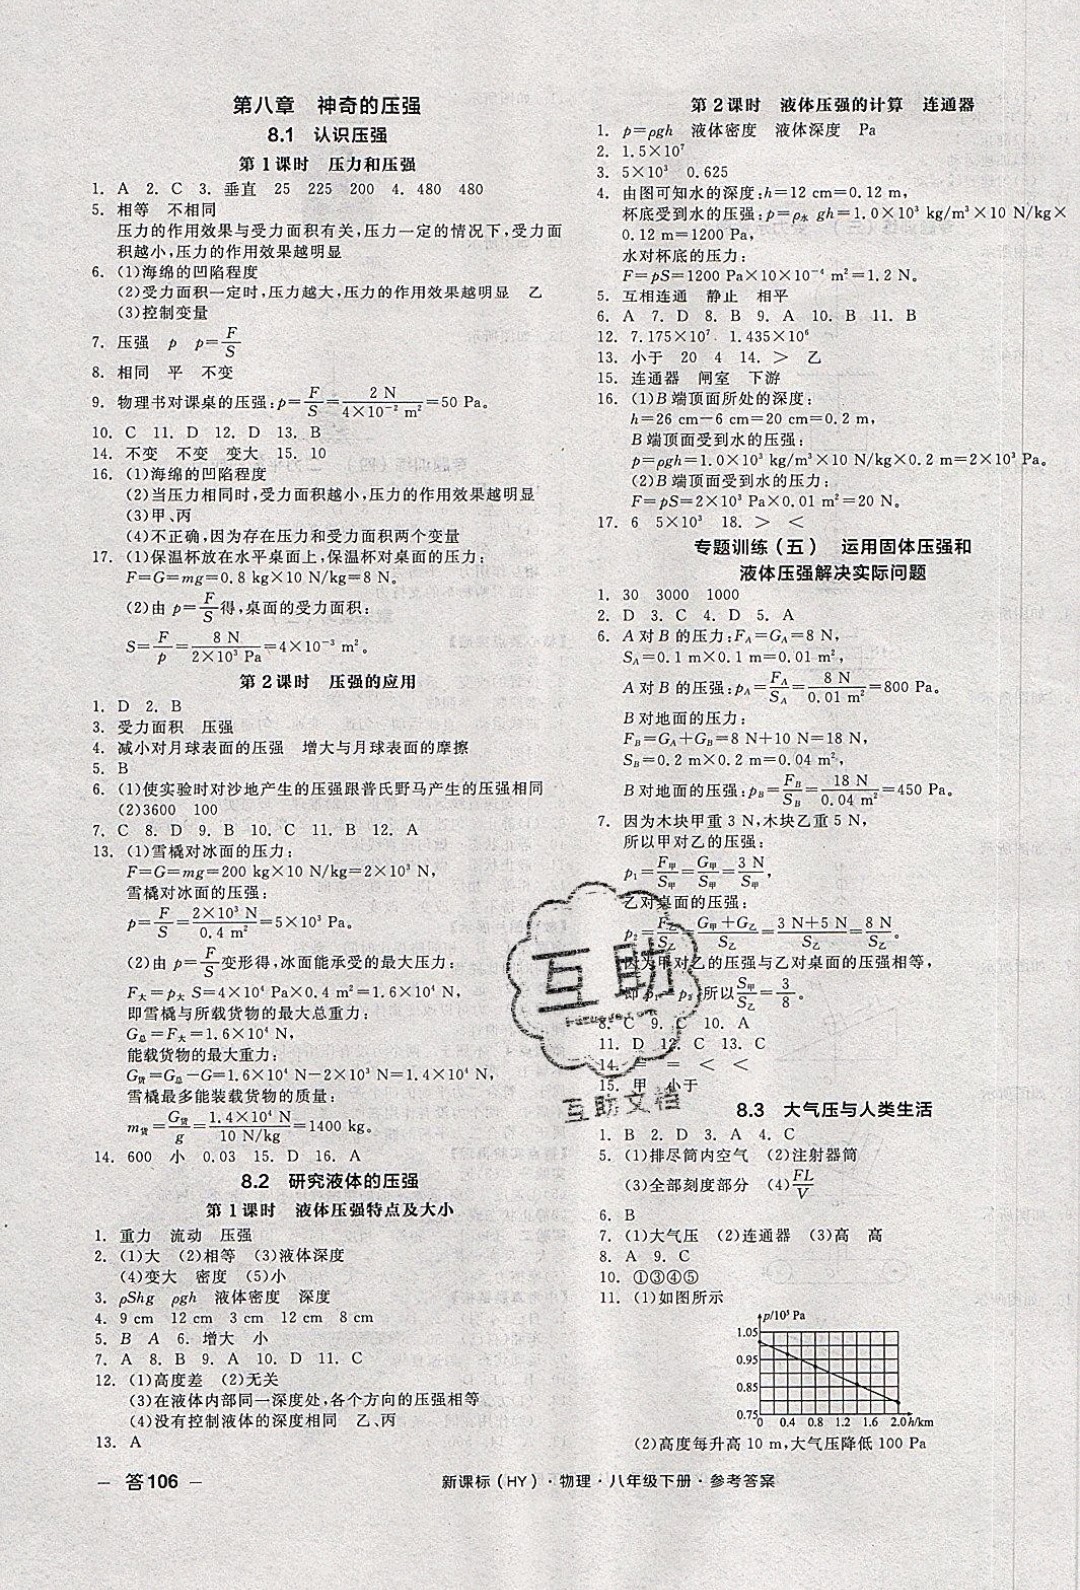 第八章 神奇的压强
8.1 认识压强
第1课时 压力和压强
1. A 2. C 3. 垂直 25 225 200 4. 480 480
5. 相等 不相同
压力的作用效果与受力面积有关,压力一定的情况下,受力面
积越小,压力的作用效果越明显
6. (1)海绵的凹陷程度
(2)受力面积一定时,压力越大,压力的作用效果越明显 乙
(3)控制变量
7. 压强 p p=F/S
8. 相同 平 不变
9. 物理书对课桌的压强:p=F/S=2 N/4×10⁻² m²=50 Pa。
10. C 11. D 12. D 13. B
14. 不变 不变 变大 15. 10
16. (1)海绵的凹陷程度
(2)当压力相同时,受力面积越小,压力的作用效果越明显
(3)甲、丙
(4)不正确,因为存在压力和受力面积两个变量
17. (1)保温杯放在水平桌面上,保温杯对桌面的压力:
F=G=mg=0.8 kg×10 N/kg=8 N。
(2)由 p=F/S得,桌面的受力面积:
S=F/p=8 N/2×10³ Pa=4×10⁻³ m²。
第2课时 压强的应用
1. D 2. B
3. 受力面积 压强
4. 减小对月球表面的压强 增大与月球表面的摩擦
5. B
6. (1)使实验时对沙地产生的压强跟普氏野马产生的压强相同
(2)3600 100
7. C 8. D 9. B 10. C 11. B 12. A
13. (1)雪橇对冰面的压力:
F=G=mg=200 kg×10 N/kg=2×10³ N,
雪橇对冰面的压强:
p=F/S=2×10³ N/0.4 m²=5×10³ Pa。
(2)由 p=F/S变形得,冰面能承受的最大压力:
F大=p大 S=4×10⁴ Pa×0.4 m²=1.6×10⁴ N,
即雪橇与所载货物的最大总重力:
G总=F大=1.6×10⁴ N,
能载货物的最大重力:
G货=G总-G=1.6×10⁴ N-2×10³ N=1.4×10⁴ N,
雪橇最多能装载货物的质量:
m货=G货/g=1.4×10⁴ N/10 N/kg=1400 kg。
14. 600 小 0.03 15. D 16. A
8.2 研究液体的压强
第1课时 液体压强特点及大小
1. 重力 流动 压强
2. (1)大 (2)相等 (3)液体深度
(4)变大 密度 (5)小
3. ρShg ρgh 液体密度 深度
4. 9 cm 12 cm 3 cm 12 cm 8 cm
5. B A 6. 增大 小
7. A 8. B 9. A 10. D 11. C
12. (1)高度差 (2)无关
(3)在液体内部同一深度处,各个方向的压强相等
(4)没有控制液体的深度相同 乙、丙
13. A
第2课时 液体压强的计算 连通器
1. p=ρgh 液体密度 液体深度 Pa
2. 1.5×10⁷
3. 5×10³ 0.625
4. 由图可知水的深度:h=12 cm=0.12 m,
杯底受到水的压强:p=ρ水 gh=1.0×10³ kg/m³×10 N/kg×
0.12 m=1200 Pa,
水对杯底的压力:
F=pS=1200 Pa×10×10⁻⁴ m²=1.2 N。
5. 互相连通 静止 相平
6. A 7. D 8. B 9. A 10. B 11. B
12. 7.175×10⁷ 1.435×10⁶
13. 小于 20 4 14. > 乙
15. 连通器 闸室 下游
16. (1)B 端顶面所处的深度:
h=26 cm-6 cm=20 cm=0.2 m,
B 端顶面受到水的压强:
p=ρgh=1.0×10³ kg/m³×10 N/kg×0.2 m=2×10³ Pa。
(2)B 端顶面受到水的压力:
F=pS=2×10³ Pa×0.01 m²=20 N。
17. 6 5×10³ 18. > <
专题训练(五) 运用固体压强和
液体压强解决实际问题
1. 30 3000 1000
2. D 3. C 4. D 5. A
6. A 对 B 的压力:FA=GA=8 N,
SA=0.1 m×0.1 m=0.01 m²,
A 对 B 的压强:pA=FA/SA=8 N/0.01 m²=800 Pa。
B 对地面的压力:
FB=GA+GB=8 N+10 N=18 N,
SB=0.2 m×0.2 m=0.04 m²,
B 对地面的压强:pB=FB/SB=18 N/0.04 m²=450 Pa。
7. 因为木块甲重 3 N,木块乙重 5 N,
所以甲对乙的压强:
p₁=F甲/S甲=G甲/S甲=3 N/S甲,
乙对桌面的压强:
p₂=F乙/S乙=G甲+G乙/S乙=3 N+5 N/S乙=8 N/S乙。
因为甲对乙的压强与乙对桌面的压强相等,
即 p₁=p₂,所以S甲/S乙=3/8。
8. C 9. C 10. A
11. D 12. C 13. C
14. = = < <
15. 甲 小于
8.3 大气压与人类生活
1. B 2. D 3. A 4. C
5. (1)排尽筒内空气 (2)注射器筒
(3)全部刻度部分 (4)FL/V
6. B
7. (1)大气压 (2)连通器 (3)高 高
8. A 9. C
10. ①③④⑤
11. (1)如图所示
p/10⁵ Pa
1.05
0.95
0.85
0.75
0 0.4 0.8 1.2 1.6 2.0 h/km
(2)高度每升高 10 m,大气压降低 100 Pa
互助
互助文档
答106
新课标(HY)·物理·八年级下册·参考答案